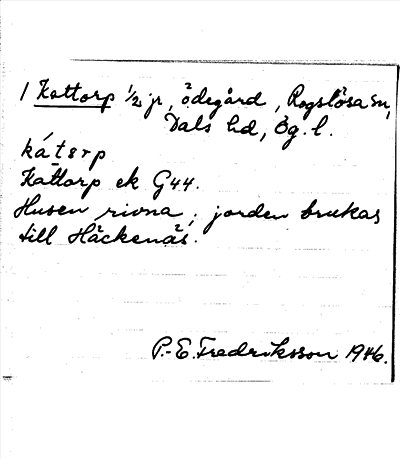 1 Kattorp 1/2 jr, ödegård, Rogslösa sn,
Dals hd, Ög. l.
kátərp
Kattorp ek G44.
Husen rivna; jorden brukas
till Häckenäs.
P.-E. Fredriksson 1946.